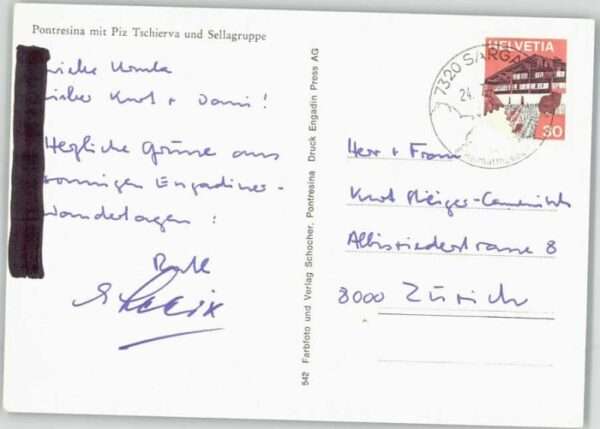 Pontresina mit Piz Tschierva und Sellagruppe
Liebe Ursula
lieber Kurt + Dani!
Herzliche Grüsse aus
sonnigen Engadiner-
Wandertagen!
542 Farbfoto und Verlag Schocher, Pontresina Druck Engadin Press AG
HELVETIA
30
7320 SARGA
24.
Herr + Frau
Kurt
Albisriederstrasse 8
8000 Zürich